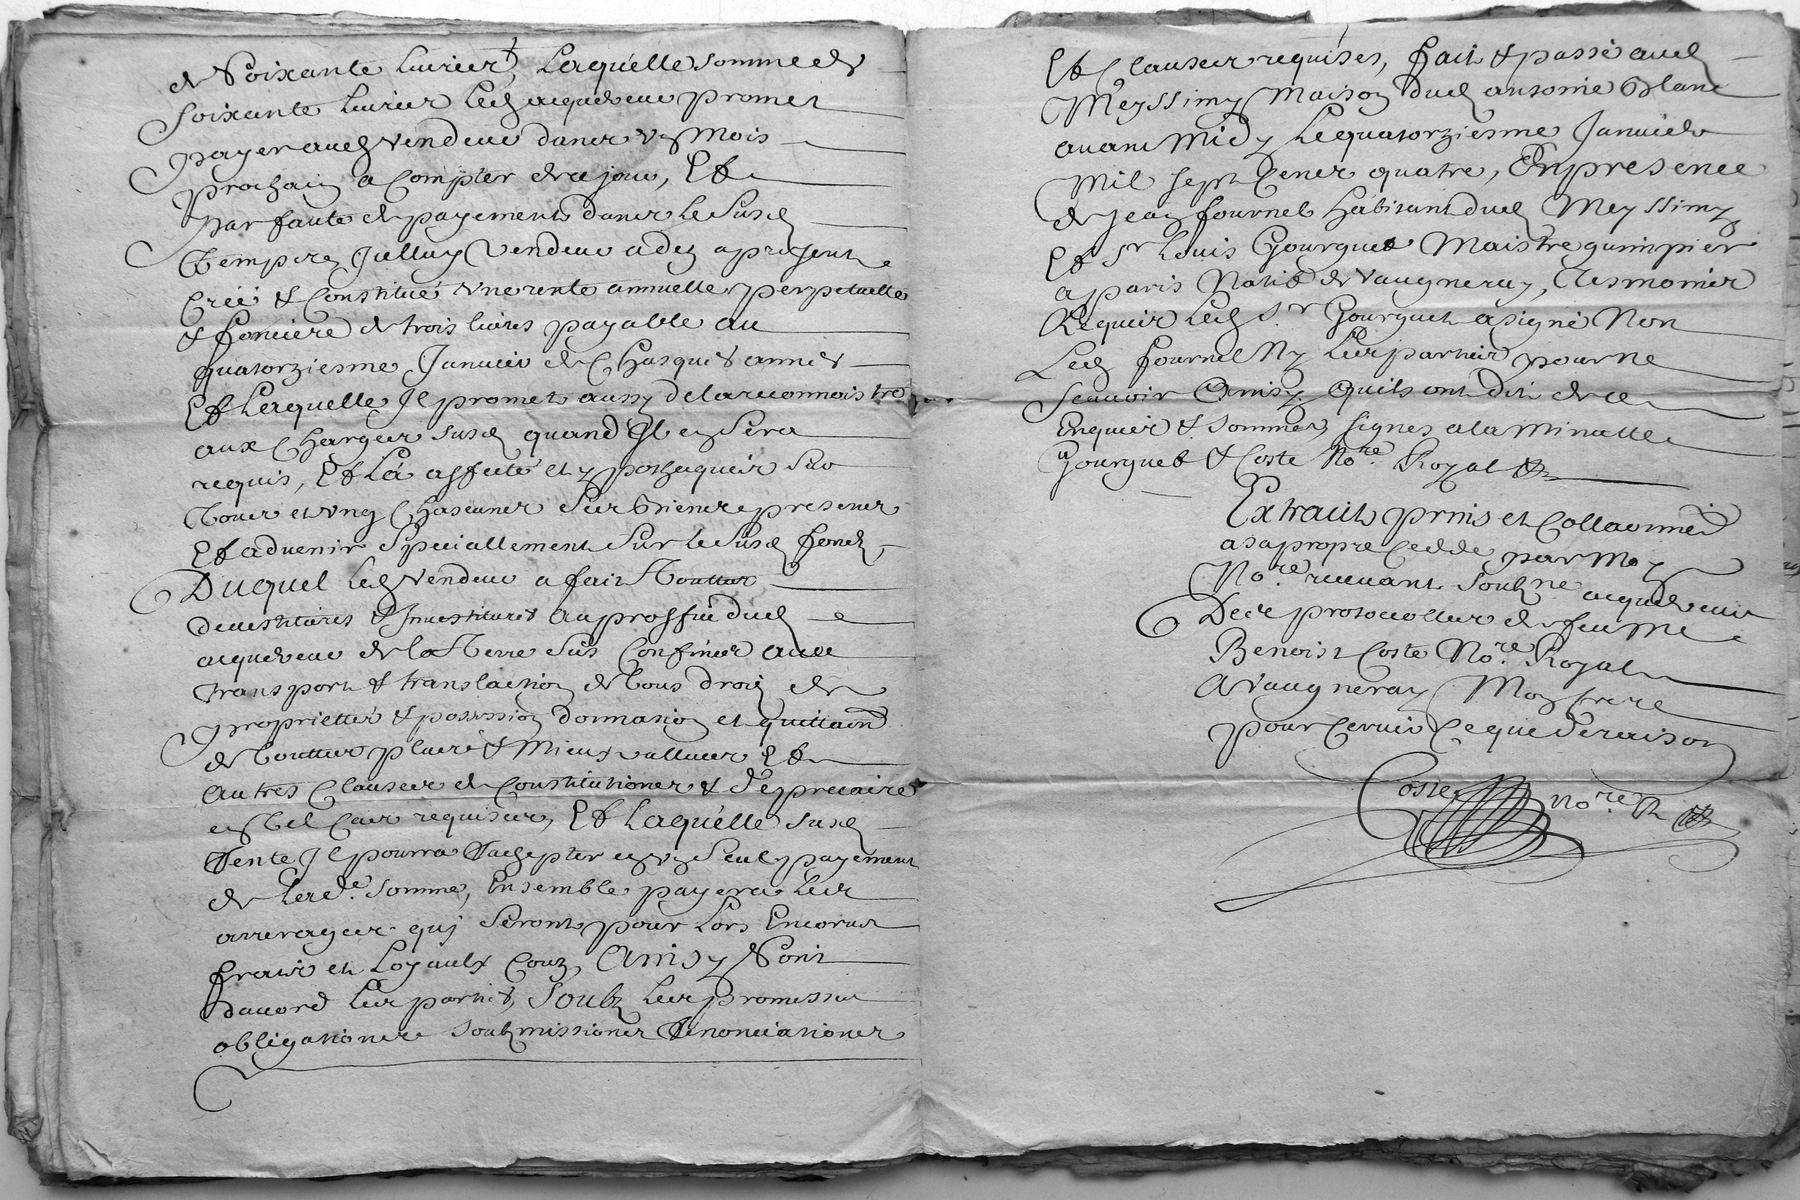 de Soixante livres, Laquelle somme de
soixante livres led acquereur promet
payer aud vendeur dans un mois
prochain a compter de ce jour, Et
par faute de payement dans le susd
temps icelluy vendeur a dez a present
créé & constitué une rente annuelle perpetuelle
& fonciere de trois livres payable au
quatorziesme Janvier de chasques années
Et Laquelle Il promet aussy de la reconnoistre
aux charges susd quand Il en sera
requis, Et La affecté et ypothequée sur
tous et ung chascuns ses biens presens
Et advenir Specialement Sur le susd fond,
Duquel led vendeur a fait touttes
devestitures & Investitures au proffit dud
acquereur de la Terre sus Confinée avec
transport & translation de tous drois de
proprietté & possession donnation et quittance
de touttes plus & mieux vallues Et
autres clauses de constitutions & de precaire
en tel cas requises, Et Laquelle susd
rente Il pourra rachepter en un seul payement
de lad.e somme, Ensemble payera les
arrerages quj seront pour lors Encorus
frais et Loyaulx Couz, Ainsy sont
d'acord les parties, Soubz les promesses
obligations soubmissions renonciations
Et Clauses requises, fait & passé aud
Meyssimy Maison dud antoine Blanc
avant Midy le quatorziesme Janvier
Mil sept Cens quatre, En presence
de Jean fournel habitant dud Meyssimy
Et Sr Louis Gourguet Maistre guimpier
a paris Natif de vaugneray, tesmoins
Requis led S.r Gourguet a signé Non
Led fournel Ny les parties pour ne
scavoir Ainsy quils ont dit de ce
Enquis & sommes, signes a la Minutte
Gourguet & Coste No.re Royal
Extrait prins et Collationné
a sa propre Cedde par Moy
No.re recevant soubz.ne acquereur
Des protocolles de feu Me
Benoist Coste No.re Royal
A Vaugneray Mon frere
pour servir Ce que de raison
Coste no.re R